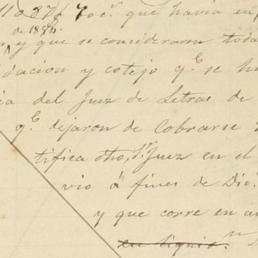 11037/70c.s que havia en
de 1884.
y que se consideraron toda
dacion y cotejo q.e se ha
cia del Juez de Letras de
q.e dejaron de Cobrarse
tifica dho. S.r Juez en el
vio á fines de Dic.e
y que corre en au